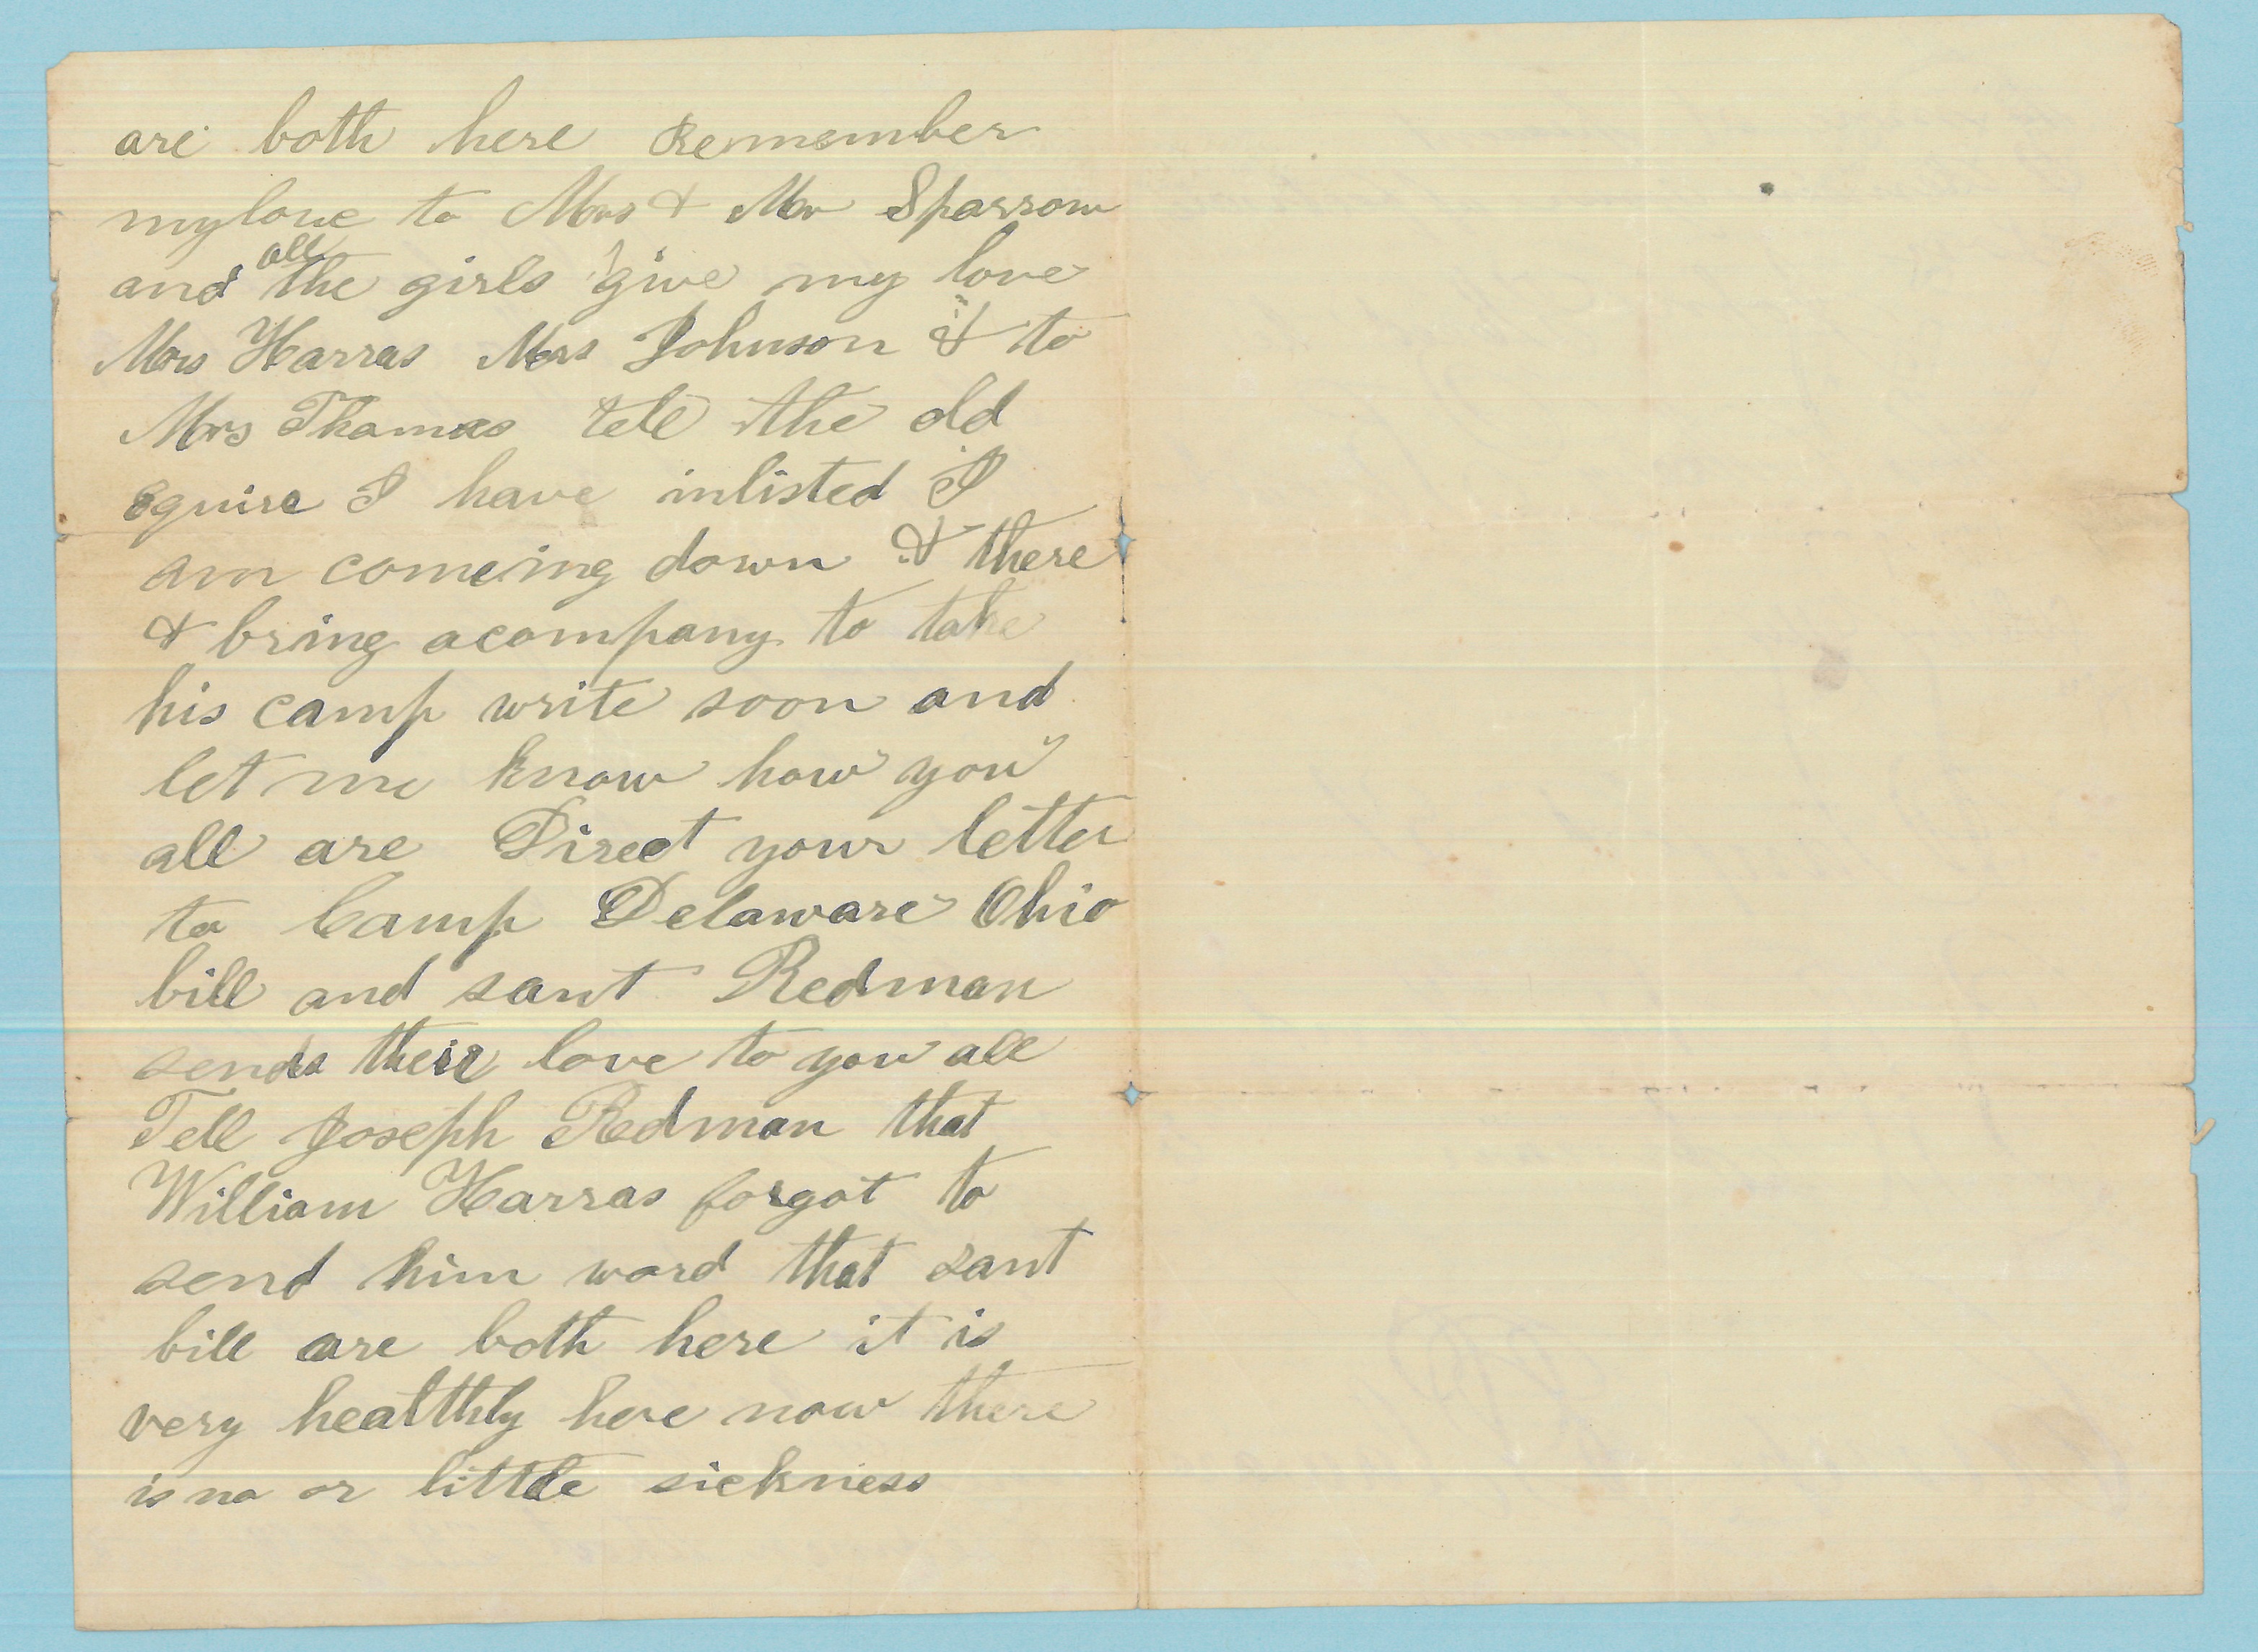 are both here Remember
my love to Mrs & Mr Sparrow
and all the girls give my love
Mrs Harras Mrs Johnson & to
Mrs Thomas tell the old
Squire I have inlisted I
am comeing down & there
& bring acompany to take
his camp write soon and
let me know how you
all are Direct your letter
to Camp Delaware Ohio
bill and sant Redman
sends their love to you all
Tell Joseph Redman that
William Harras forgot to
send him word that sant
bill are both here it is
very healthly here now there
is no or little sickness